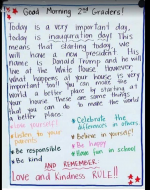 Good Morning 2nd Graders!
Today is a very important day.
Today is inauguration day! This
means that starting today, we
will have a new president! His
name is Donald Trump and he will
live at the White House. However,
what happens at your house is very
important too!! You can make the
world a better place by starting at
your house. These are some things
that you can do to make the world
a better place:
Love yourself!
Listen to your
parents
Be responsible
Be kind
Celebrate the
differences in others
Believe in yourself!
Be happy
Have fun in school
AND REMEMBER
Love and Kindness RULE!!